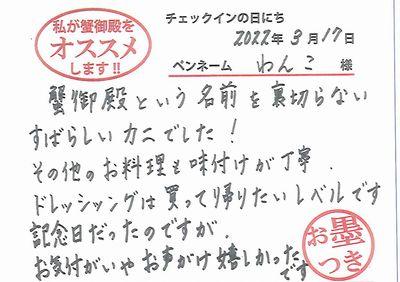 私が蟹御殿を
オススメ
します!!
チェックインの日にち
2022年3月17日
ペンネーム わんこ 様
蟹御殿という名前を裏切らない
すばらしいカニでした!
その他のお料理も味付けが丁寧.
ドレッシングは買って帰りたいレベルです
記念日だったのですが.
お気付がいやお声がけ嬉しかった
です
お墨
つき